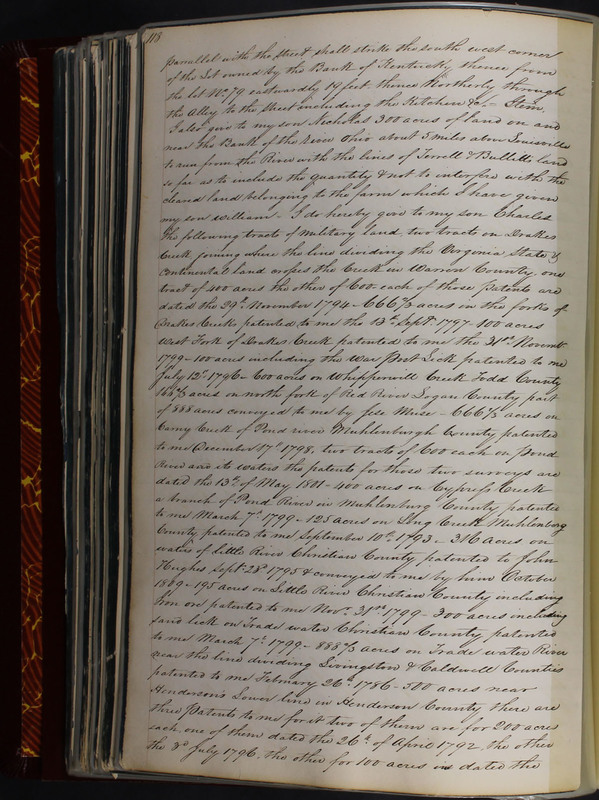 118
parrallel with the street shall strike the south west corner
of the Lot owned by the Bank of Kentucky, thence from
the lot No 79 eastwardly 19 feet. thence Northerly through
the Alley to the Street including the Kitchen &c. - Item,
I also give to my son Nicholas 300 acres of land on and
near the Bank of the river Ohio about 5 miles above Louisville
to run from the River with the lines of Terrell & Bullitts land
so far as to include the quantity & not to interfere with the
cleard land belonging to the farm which I have given
my son William - I do hereby give to my son Charles
the following tracts of Military land, two tracts on Drakes
Creek, joining where the line dividing the Virginia State &
Continental land crosses the Creek in Warren County, one
tract of 400 acres the other of 600 each of those Patents are
dated the 29th November 1794 - 666 2/3 acres in the forks of
Drakes Creek, patented to me the 13th Septr 1797 - 100 acres
West Fork of Drakes Creek patented to me the 31st Novembr
1799 - 100 acres including the War Post Lick patented to me
July 12th 1796 - 600 acres on Whipperwill Creek Todd County
166 2/3 acres on north fork of Red River Logan County part
of 888 acres conveyed to me by Muse - 666 2/3 acres on
Caney Creek of Pond river Muhlenburgh County patented
to me December 17th 1798, two tracts of 600 each on Pond
River and its waters the patents for those two surveys are
dated the 13th of May 1801 - 400 acres on Cypress Creek
a branch of Pond River in Muhlenburg County patented
to me March 7th 1799 - 125 acres on Long Creek Muhlenberg
County patented to me September 10th 1793 - 316 acres on
waters of Little River Christian County patented to John
Hughes Septr 28th 1795 & conveyed to me by him October
1809 - 195 acres on Little River Christian County including
Iron ore patented to me Novr 31st 1799 - 300 acres including
sand lick on Trade water Christian County, patented
to me March 7th 1799 - 888 2/3 acres on Trade water River
near the line dividing Livingston & Caldwell Counties
patented to me February 26th 1786 - 500 acres near
Hendersons Lower line in Henderson County there are
three Patents to me for it two of them are for 200 acres
each one of them dated the 26th of April 1792 the other
the 8th July 1796, the other for 100 acres is dated the